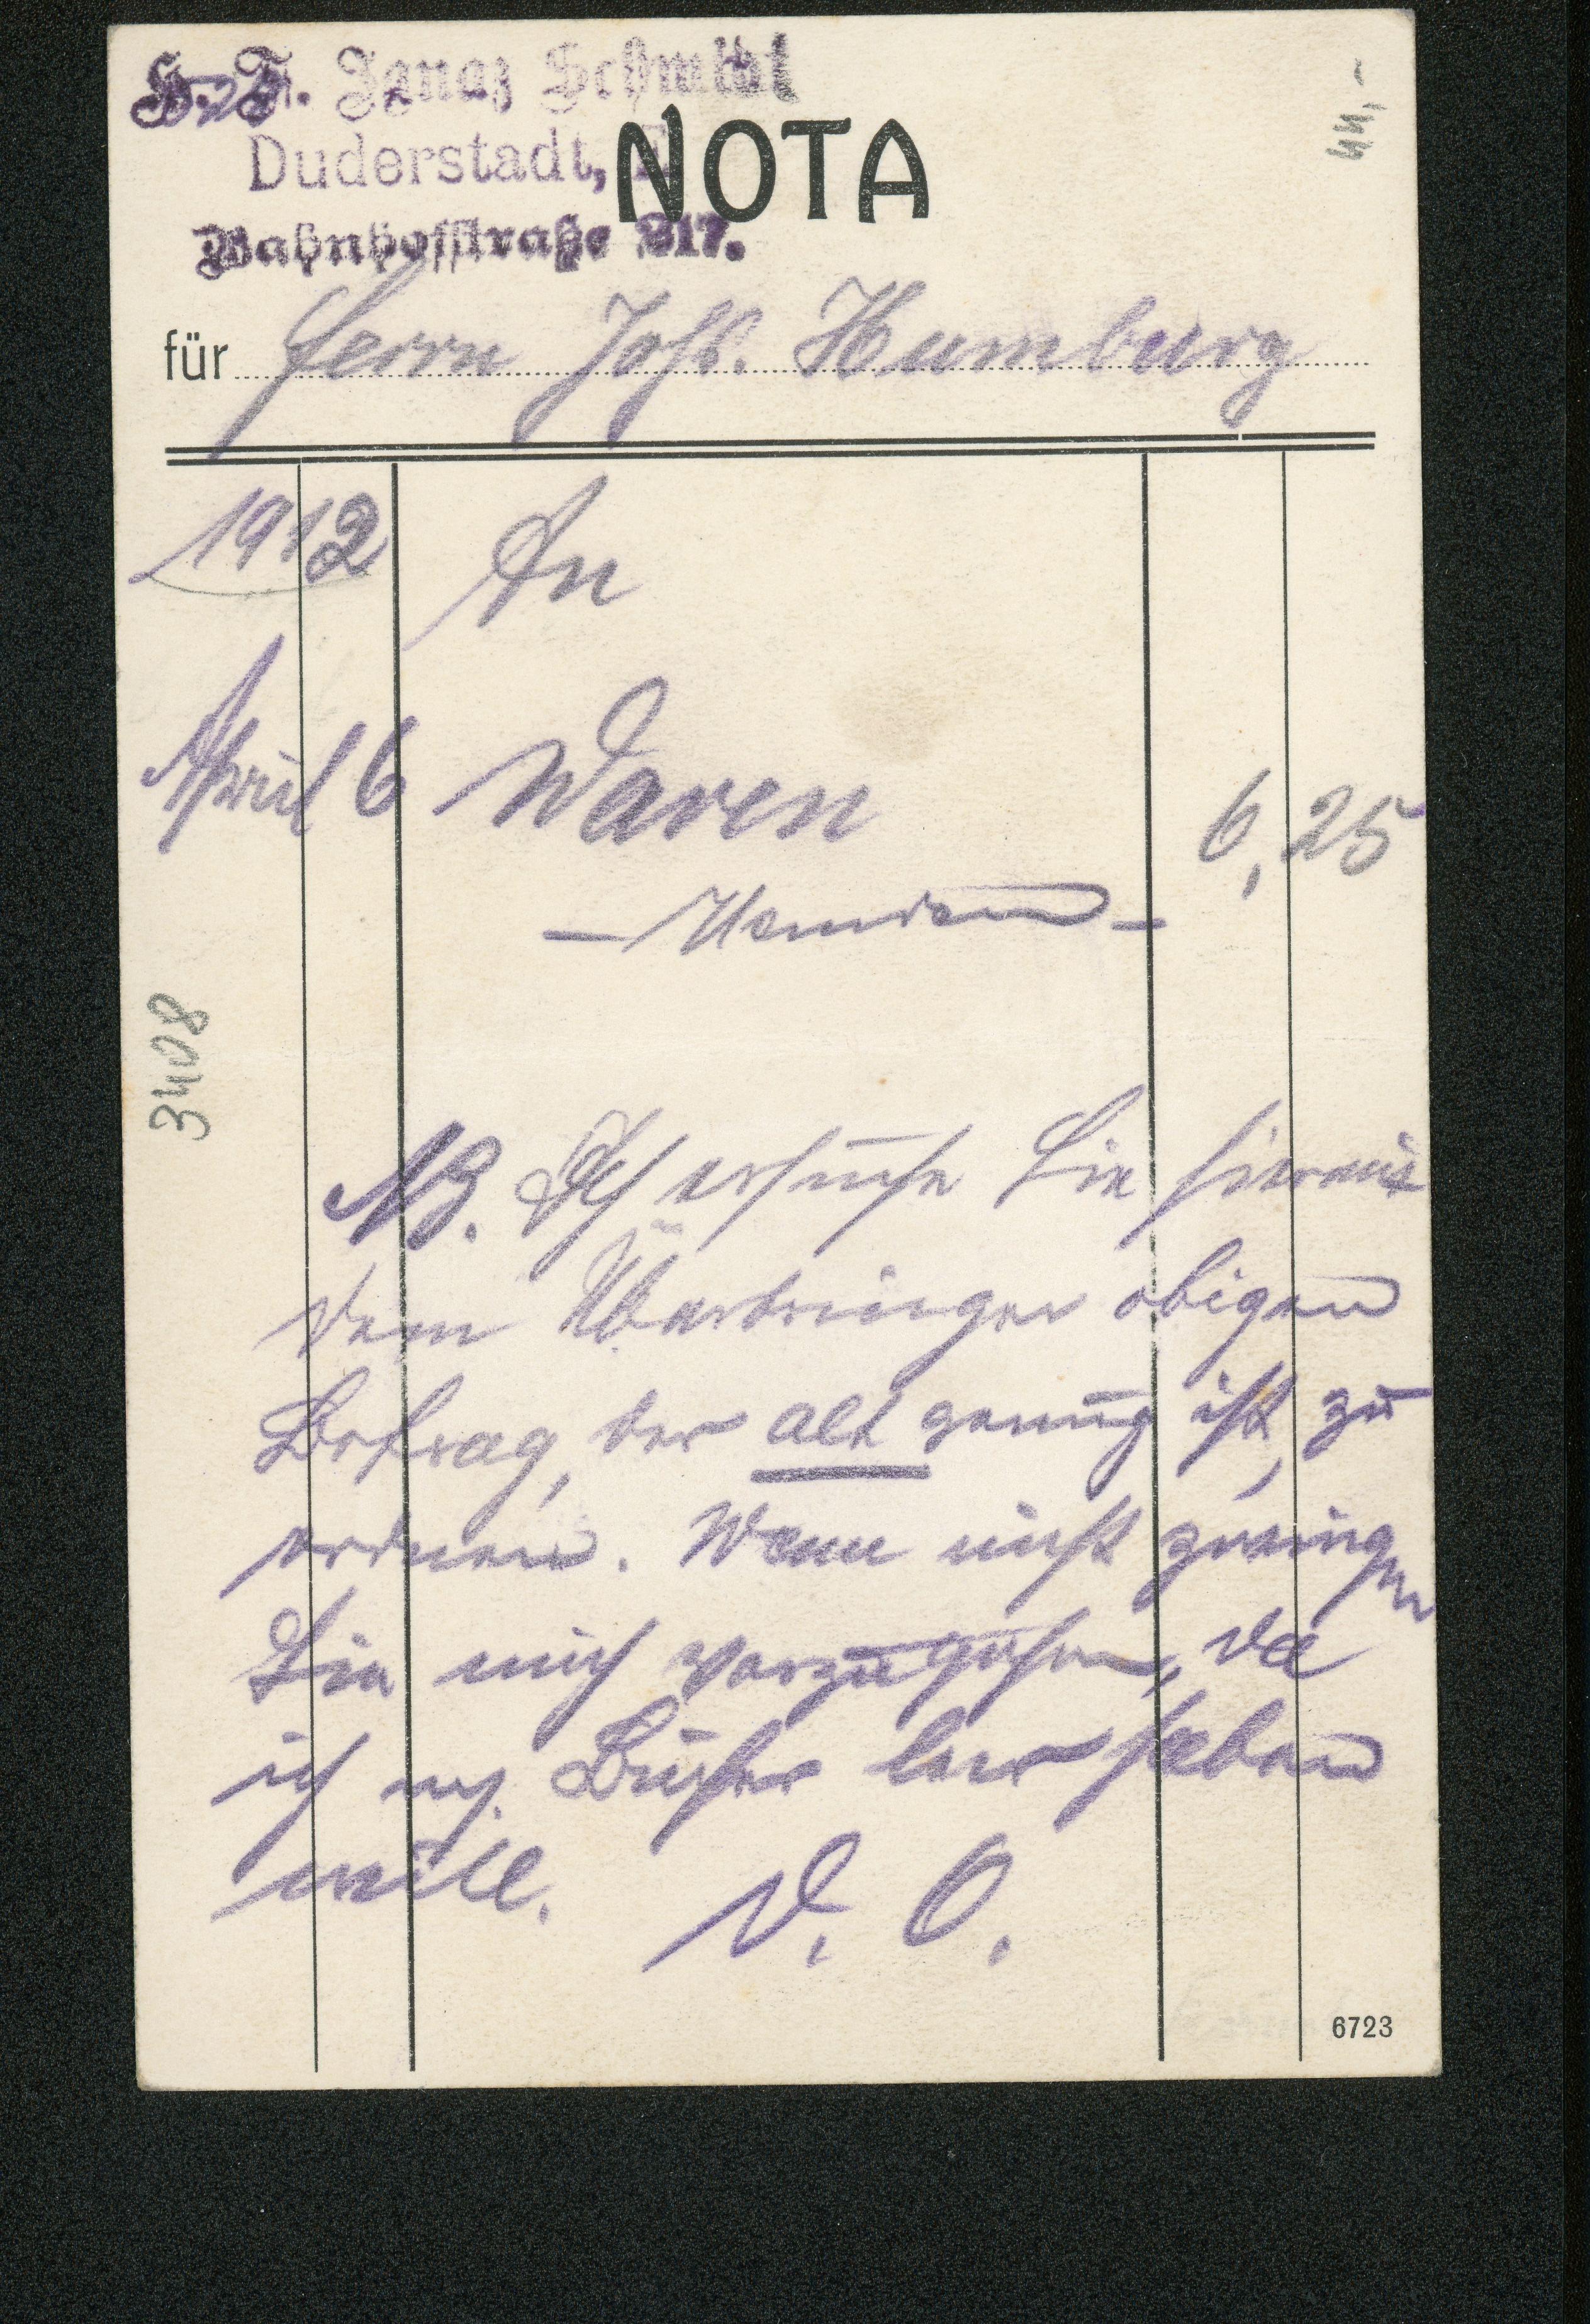 H. F. Ignaz Schmidt
Duderstadt,
Bahnhofstraße 317.
NOTA
44,-
für Herrn Johs. Humburg
1912 An
April 6 Waren 6,25
- Hemden -
3408
NB. Ich ersuche Sie hieraus
dem Überbringer obigen
Betrag, der alt genug ist, zu
ordnen. Wenn nicht zwingen
Sie mich vorzugehen, da
ich m. Bücher leer haben
will. D. O.
6723